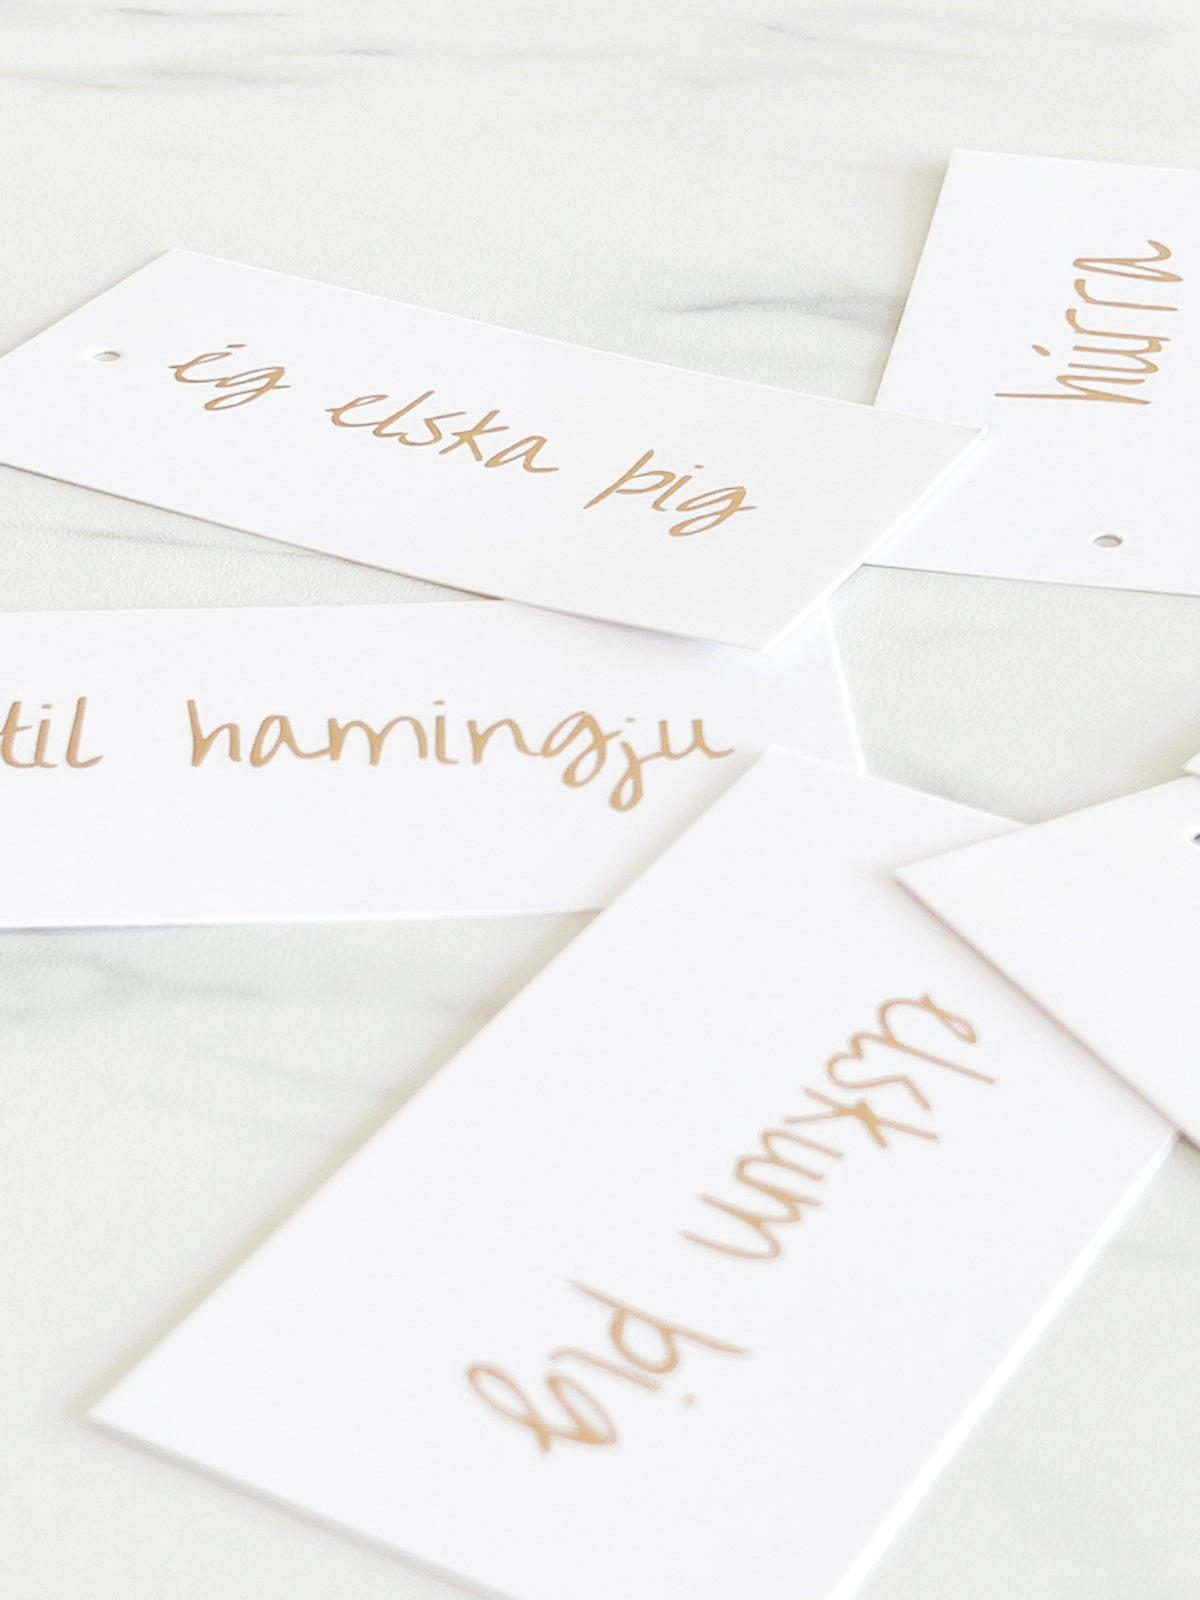 húrra
ég elska þig
til hamingju
elskum þig